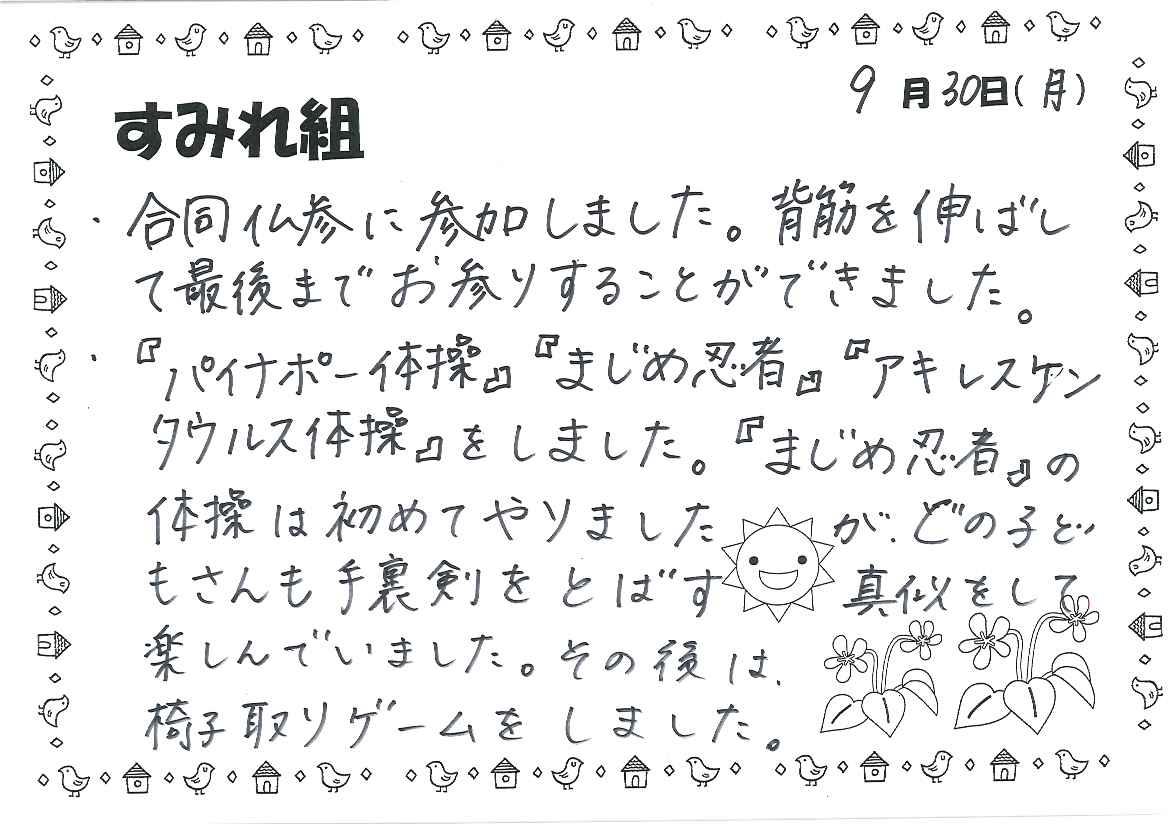 9月30日(月)
すみれ組
・合同仏参に参加しました。背筋を伸ばし
て最後までお参りすることができました。
・『パイナポー体操』『まじめ忍者』『アキレスケン
タウルス体操』をしました。『まじめ忍者』の
体操は初めてやりましたが、どの子ど
もさんも手裏剣をとばす真似をして
楽しんでいました。その後は、
椅子取りゲームをしました。